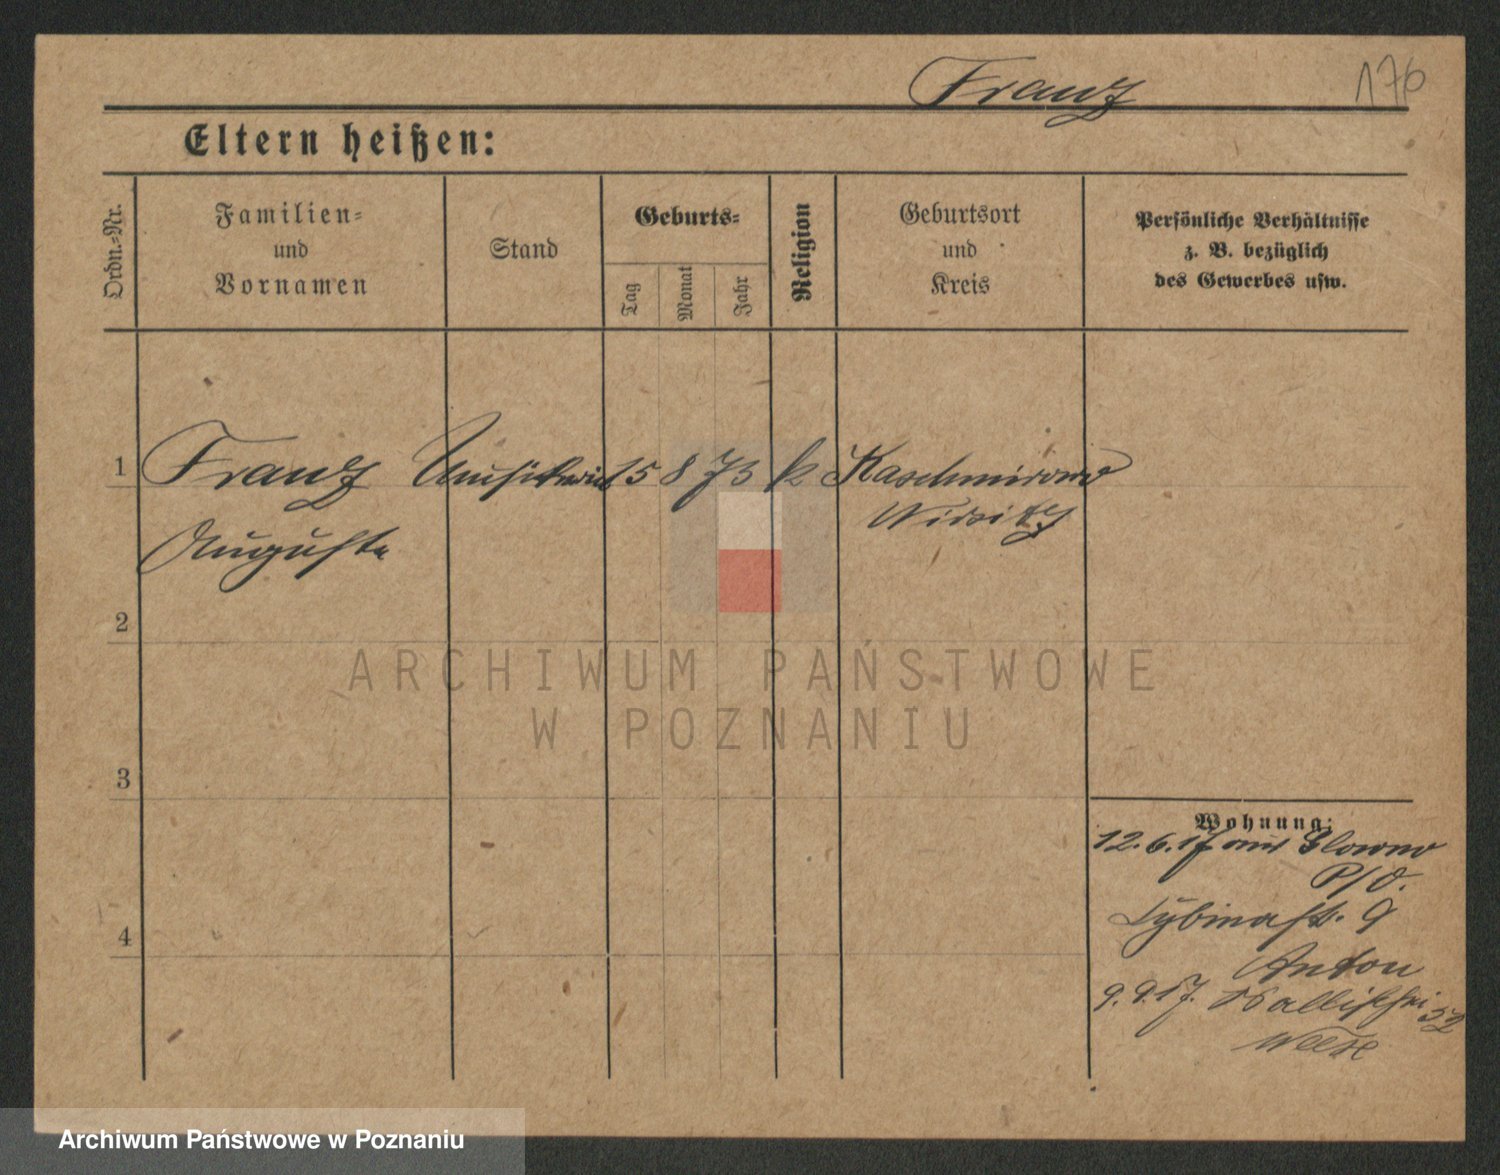 Franz 176
Eltern heißen:
Ordn.-Nr.
Familien-
und
Vornamen
Stand
Geburts-
Tag
Monat
Jahr
Religion
Geburtsort
und
Kreis
Persönliche Verhältnisse
z. B. bezüglich
des Gewerbes usw.
1 Franz 15 8 73 k Kaschmirowo
Wirsitz
Auguste
2
ARCHIWUM PAŃSTWOWE
W POZNANIU
3
Wohnung:
12.6.17 aus Glowno
P/O.
Cybinastr. 9
4
Anton
9.9.17. Wallischei 32
Weese
Archiwum Państwowe w Poznaniu